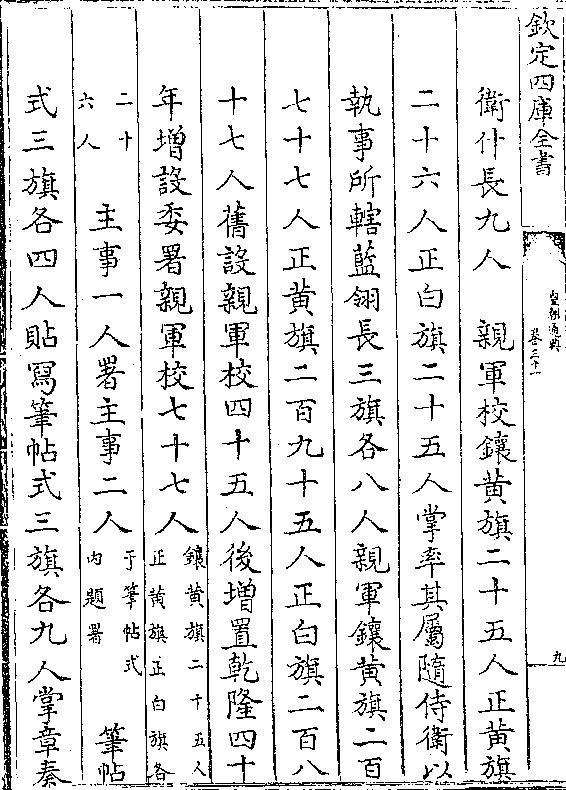 欽定四庫全書
皇朝通典
卷三十一
九
衛什長九人　親軍校鑲黄旗二十五人正黄旗
二十六人正白旗二十五人掌率其屬隨侍衛以
執事所轄藍翎長三旗各八人親軍鑲黄旗二百
七十七人正黄旗二百九十五人正白旗二百八
十七人舊設親軍校四十五人後增置乾隆四十
年增設委署親軍校七十七人鑲黄旗二十五人
正黄旗正白旗各
二十
六人　主事一人署主事二人于筆帖式
内題署　筆帖
式三旗各四人貼寫筆帖式三旗各九人掌章奏